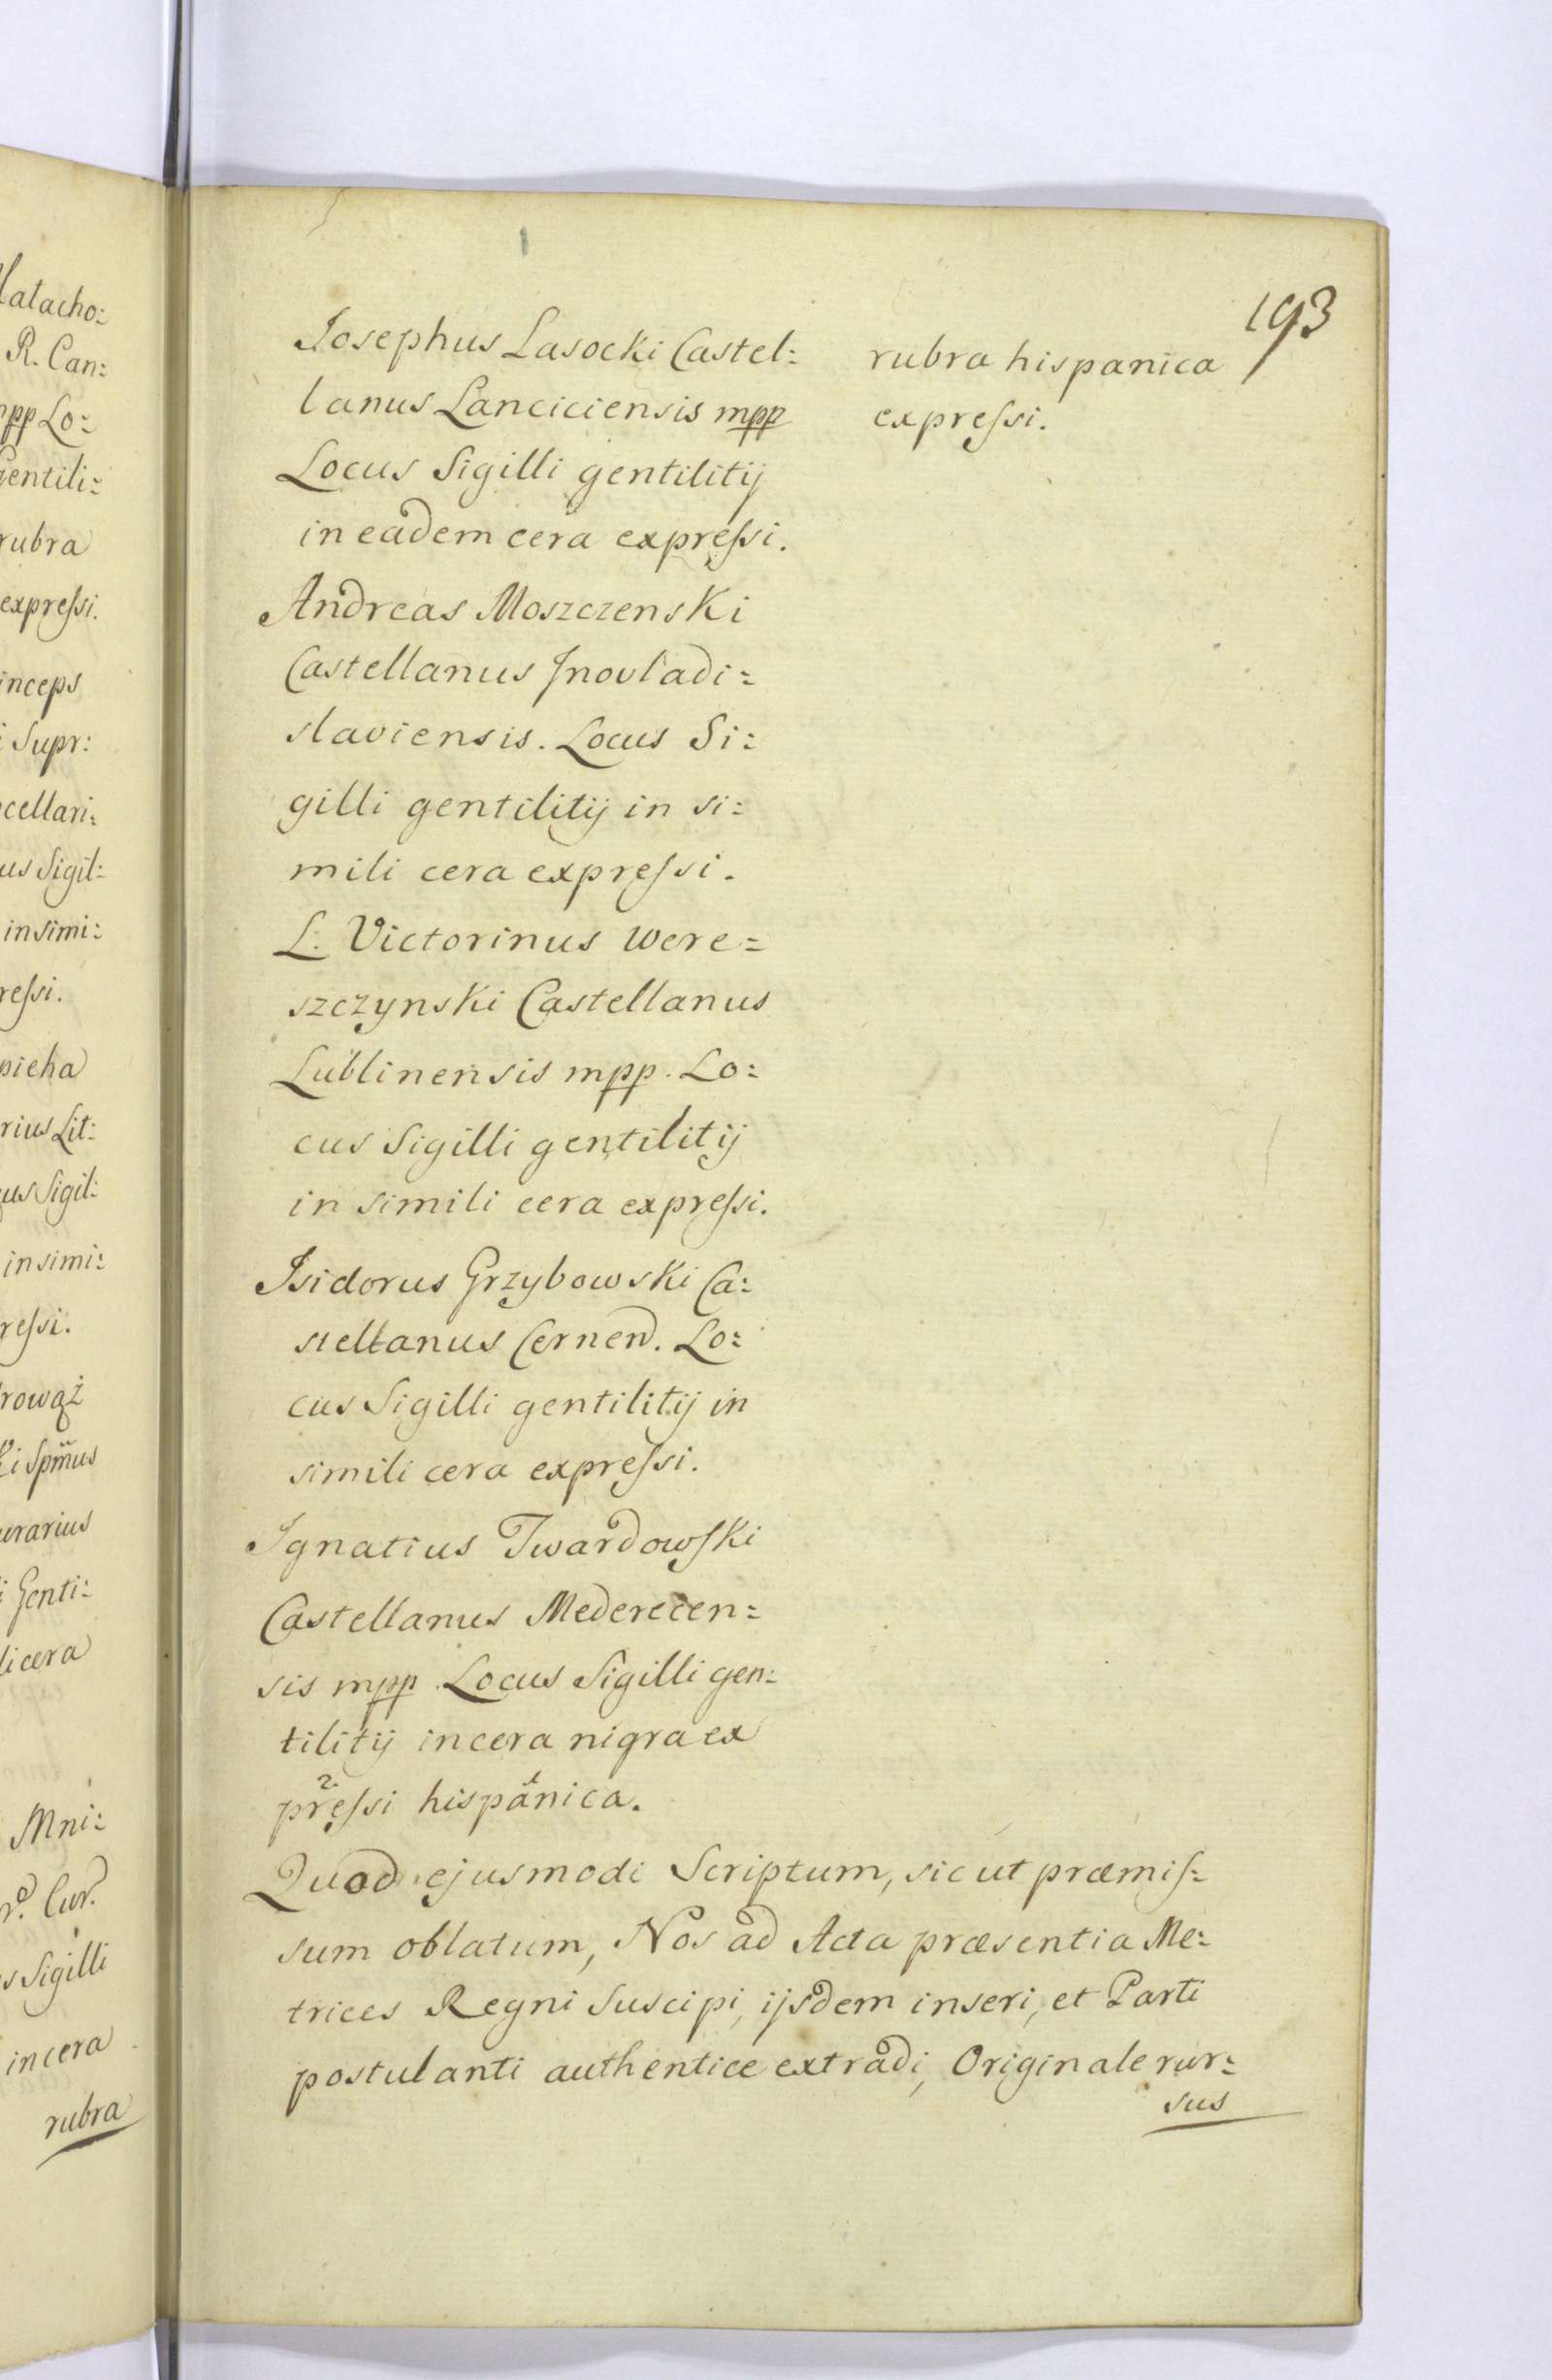 latacho:
R. Can:
mpp Lo:
gentili:
rubra
expressi.
inceps
i Supr:
cellari:
us Sigil:
in simi:
ressi.
pieha
rius Lit:
us Sigil:
in simi:
ressi.
rowąż
ki Spm̃us
urarius
i Genti:
li cera
Mni:
Cur.
s Sigilli
in cera
rubra
193
Josephus Lasocki Castel:
lanus Lanciciensis mpp
Locus Sigilli gentilitij
in eadem cera expressi.
Andreas Moszczenski
Castellanus Inovladi:
slaviensis. Locus Si:
gilli gentilitij in si:
mili cera expressi.
L. Victorinus Were:
szczynski Castellanus
Lublinensis mpp. Lo:
cus Sigilli gentilitij
in simili cera expressi.
Isidorus Grzybowski Ca:
stellanus Cernen. Lo:
cus Sigilli gentilitij in
simili cera expressi.
Ignatius Twardowski
Castellanus Mederecen:
sis mpp. Locus Sigilli gen:
tilitij in cera nigra ex
pressi hispanica.
rubra hispanica
expressi.
Quod ejusmodi Scriptum, sicut præmis:
sum oblatum, Nos ad Acta præsentia Me:
trices Regni suscipi, ijsdem inseri, et Parti
postulanti authentice extradi, Originale rur:
sus